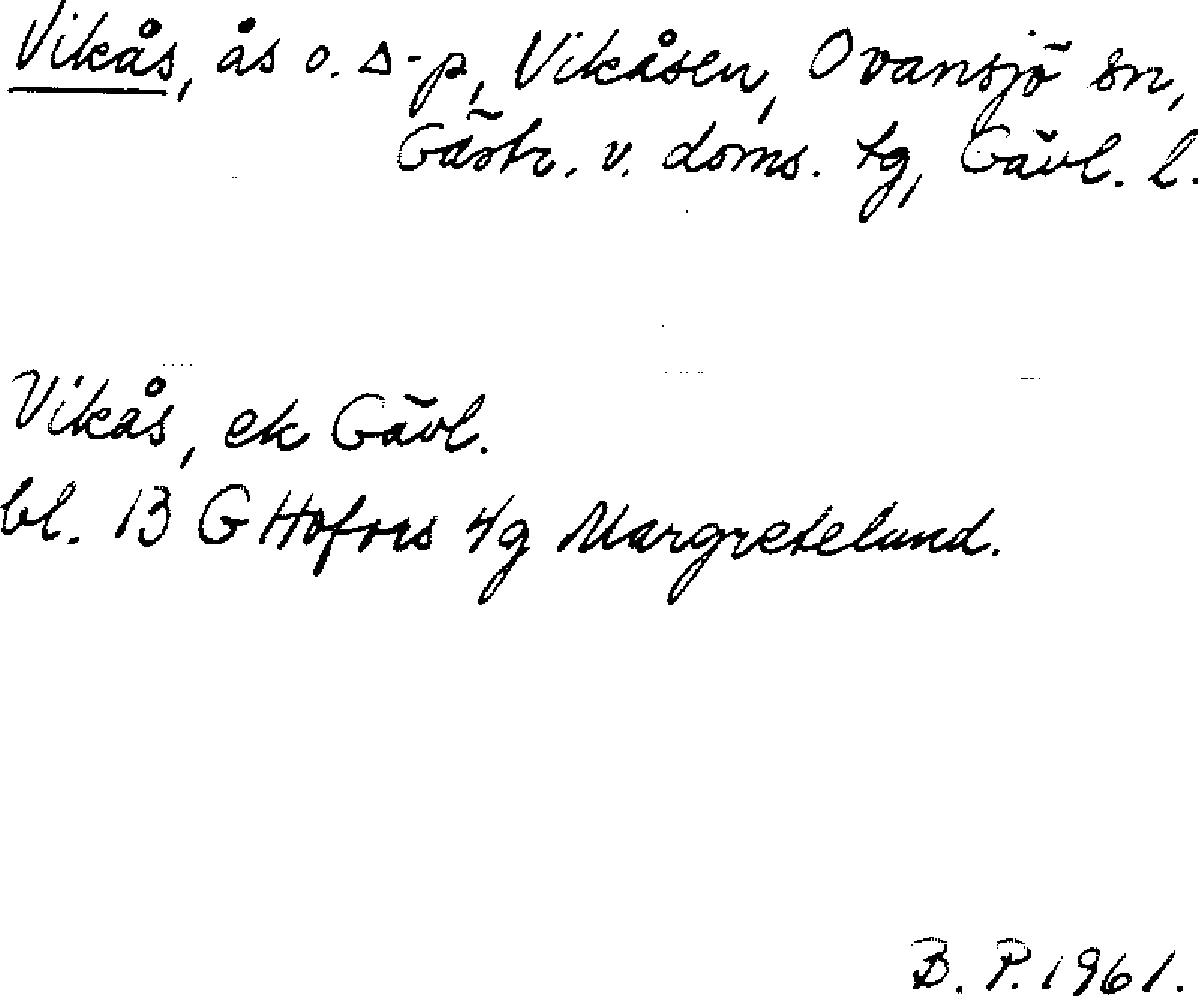 Vikås, ås o. Δ-p, Vikåsen, Ovansjö sn,
Gästr. v. doms. tg, Gävl. l.
Vikås, ek Gävl.
bl. 13 G Hofors 4g Margretelund.
B. P. 1961.